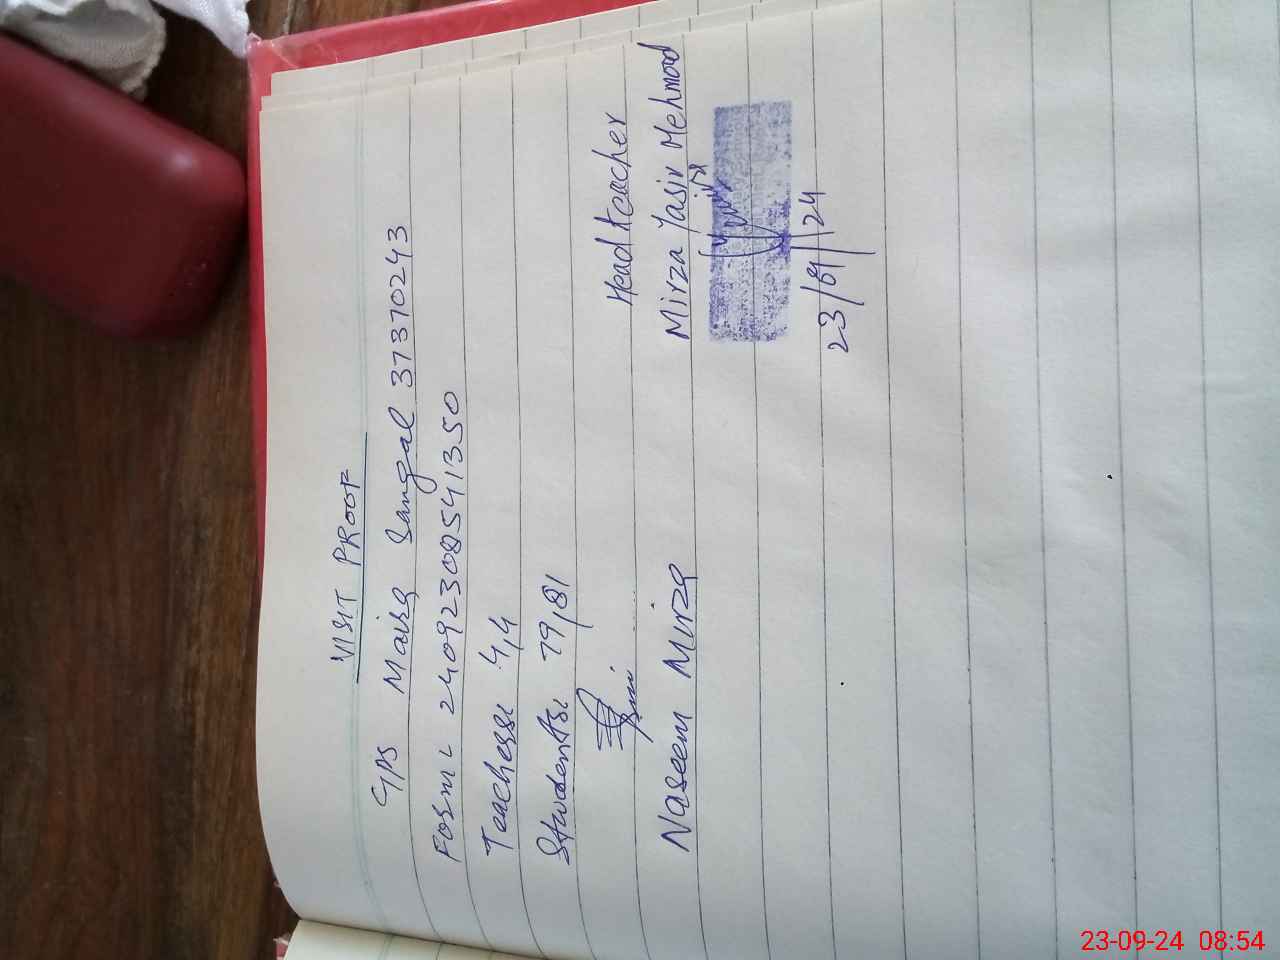 VISIT PROOF
GPS Maira Sangal 37370243
Form: 24092308541350
Teachers: 4,4
Students: 79,81
Naseem Mirza
Head teacher
Mirza Yasir Mehmood
23/09/24
23-09-24 08:54